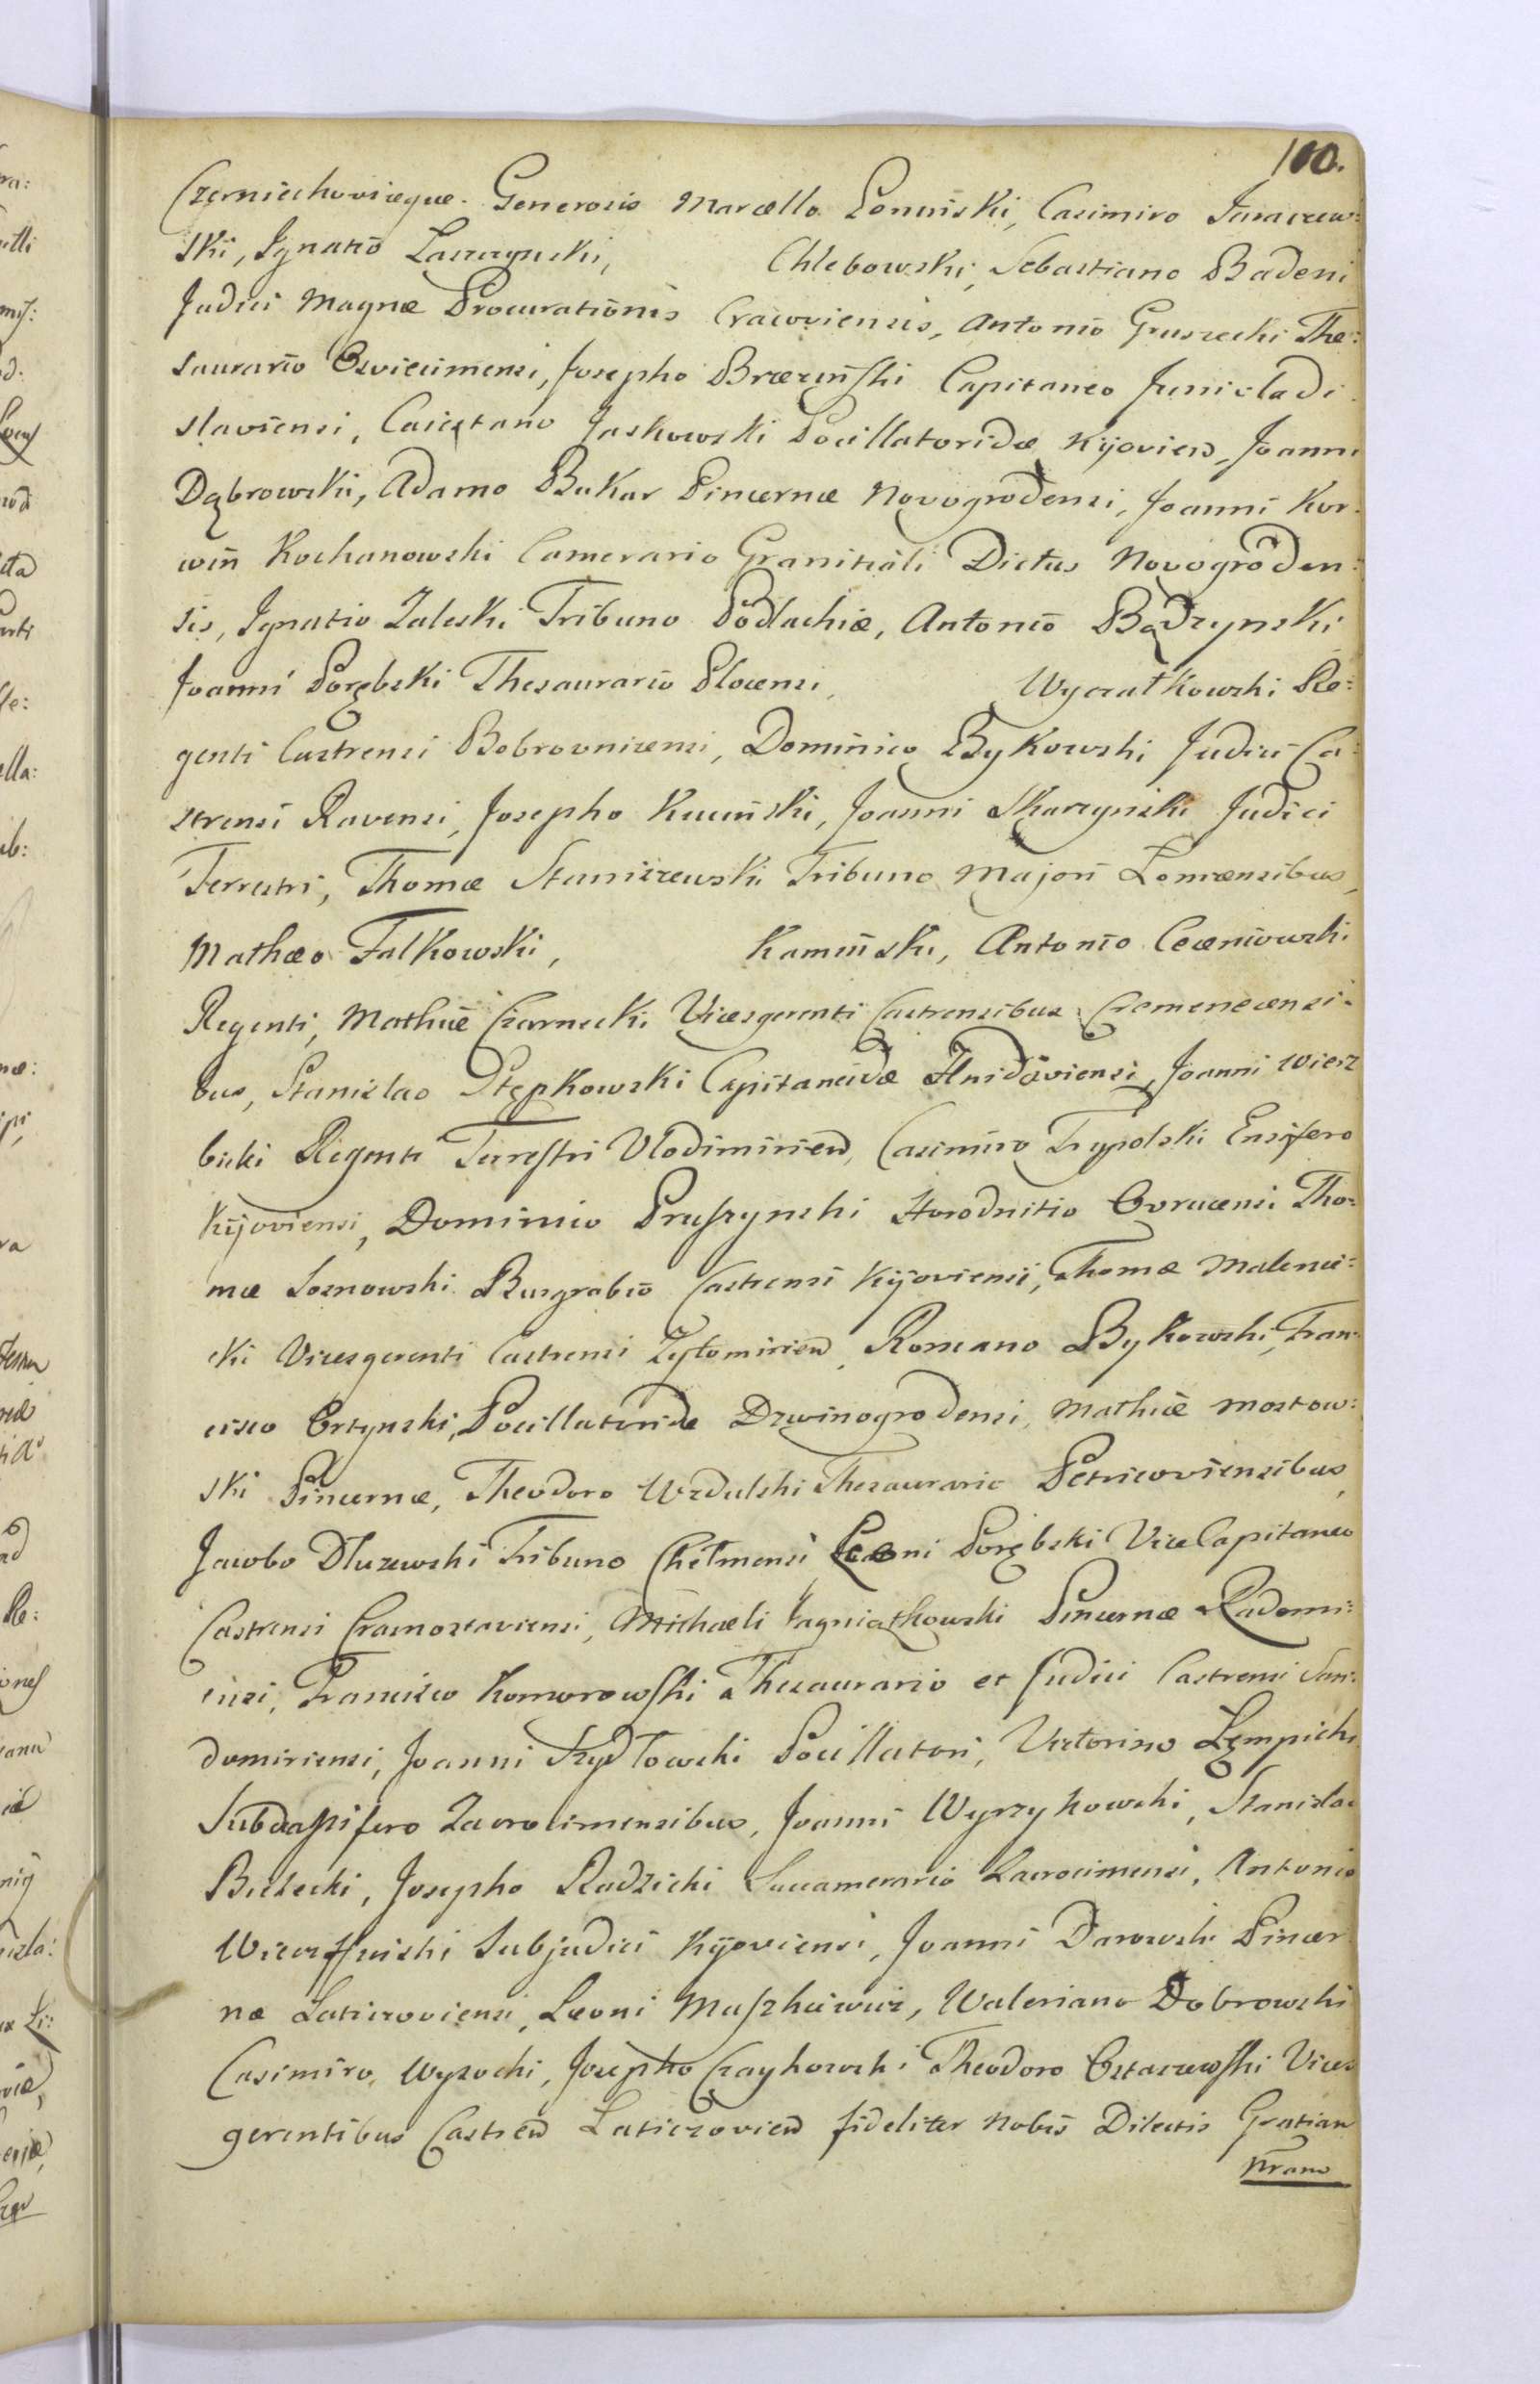 100.
Czerniechoviæque. Generosis Marcello Łoniński, Casimiro Juraczew:
ski, Ignatio Laszczynski, Chlebowski, Sebastiano Badeni
Judici Magnæ Procurationis Cracoviensis, Antonio Gruszecki The:
saurario Osviecimensi, Josepho Brzeziński Capitaneo Junivladi
slaviensi, Caietano Jaskowski Pocillatoridæ Kijovien, Joanni
Dąbrowski, Adamo Bukar Pincernæ Novogrodensi, Joanni Kor:
win Kochanowski Camerario Granitiali Dictus Novogroden:
sis, Ignatio Zaleski Tribuno Podlachiæ, Antonio Bądzynski
Joanni Porębski Thesaurario Plocensi, Wyczałkowski Re:
genti Castrensi Bobrovnicensi, Dominico Bykowski Judici Ca:
strensi Ravensi, Josepho Kuciński, Joanni Skarzynski Judici
Terrestri, Thomæ Staniszewski Tribuno Majori Lomzensibus,
Mathæo Falkowski, Kamiński, Antonio Ceceniowski
Regenti, Mathiæ Czarnecki Vicesgerenti Castrensibus Cremenecensi:
bus, Stanislao Stępkowski Capitaneidæ Hnidaviensi, Joanni Wierz
bicki Regenti Terrestri Vlodimirien, Casimiro Trypolski Ensifero
Kijoviensi, Dominico Pruszynski Horodnitio Ovrucensi Tho:
mæ Sosnowski Burgrabio Castrensi Kijoviensi, Thomæ Malenie:
cki Vicesgerenti Castrensi Zytomirien, Romano Bykowski, Fran:
cisco Ortynski, Pocillatoridæ Dzwinogrodensi, Mathiæ Mostow:
ski Pincernæ, Theodoro Wzdulski Thesaurario Petricoviensibus,
Jacobo Dłuzewski Tribuno Chełmensi, Leoni Porębski Vice Capitaneo
Castrensi Crasnostaviensi, Michaeli Jagniątkowski Pincernæ Radomi:
ensi, Francisco Komorowski Thesaurario et Judici Castrensi San:
domiriensi, Joanni Szydłowski Pocillatori, Victorino Lempicki
Subdapifero Zacrocimensibus, Joanni Wyrzykowski, Stanislao
Bielecki, Josepho Radzicki Succamerario Zacrocimensi, Antonio
Subjudici Kijoviensi, Joanni Darowski Pincer
næ Laticzoviensi, Leoni Maszkiewicz, Waleriano Dobrowski
Casimiro, Wysocki, Josepho Czaykowski Theodoro Ostaszewski Vices
gerentibus Castren Laticzovien fideliter Nobis Dilectis Gratiam
Nram